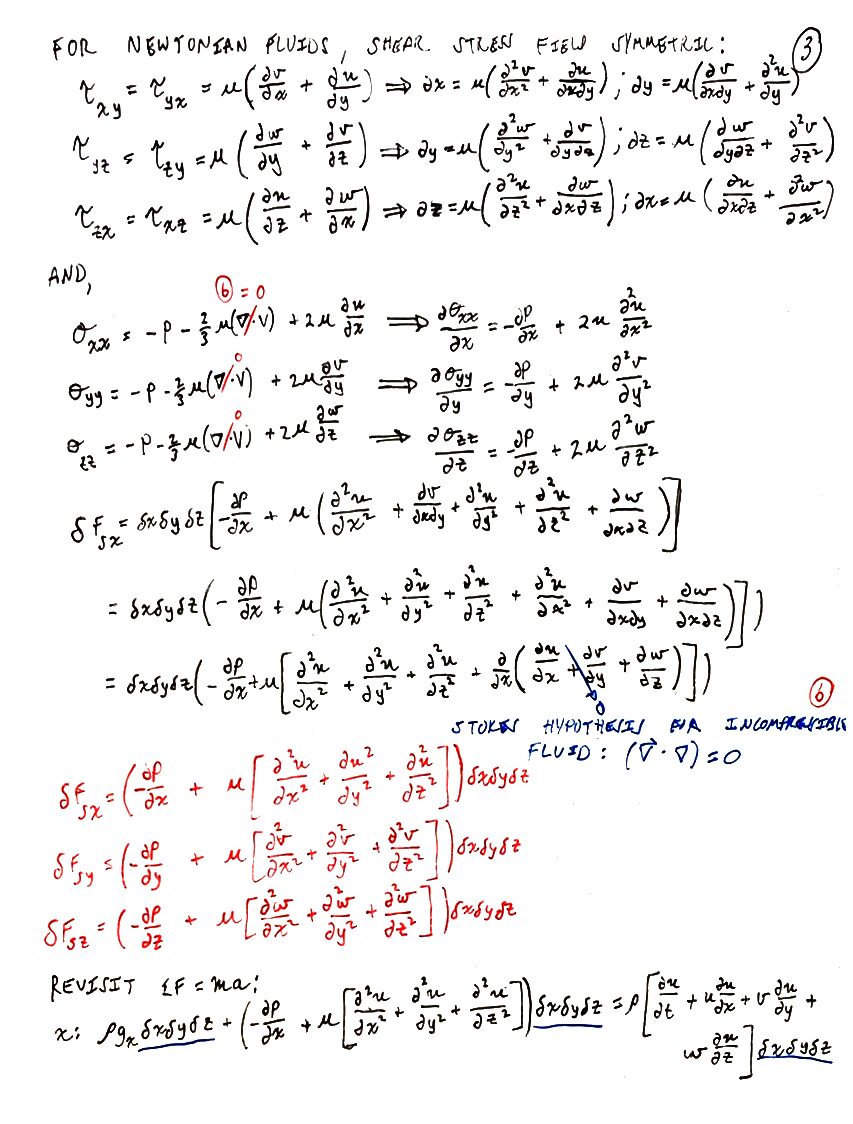 FOR NEWTONIAN FLUIDS, SHEAR STRESS FIELD SYMMETRIC: ③
τ_xy = τ_yx = μ(∂v/∂x + ∂u/∂y) ⟹ ∂x = μ(∂²v/∂x² + ∂u/∂x∂y) ; ∂y = μ(∂v/∂x∂y + ∂²u/∂y)
τ_yz = τ_zy = μ(∂w/∂y + ∂v/∂z) ⟹ ∂y = μ(∂²w/∂y² + ∂v/∂y∂z) ; ∂z = μ(∂w/∂y∂z + ∂²v/∂z²)
τ_zx = τ_xz = μ(∂u/∂z + ∂w/∂x) ⟹ ∂z = μ(∂²u/∂z² + ∂w/∂x∂z) ; ∂x = μ(∂u/∂x∂z + ∂²w/∂x²)
AND,
⑥ = 0
σ_xx = -P - 2/3 μ(∇·V) + 2μ ∂u/∂x ⟹ ∂σ_xx/∂x = -∂P/∂x + 2μ ∂²u/∂x²
0
σ_yy = -P - 2/3 μ(∇·V) + 2μ ∂v/∂y ⟹ ∂σ_yy/∂y = -∂P/∂y + 2μ ∂²v/∂y²
0
σ_zz = -P - 2/3 μ(∇·V) + 2μ ∂w/∂z ⟹ ∂σ_zz/∂z = -∂P/∂z + 2μ ∂²w/∂z²
δF_sx = δxδyδz[-∂P/∂x + μ(∂²u/∂x² + ∂v/∂x∂y + ∂²u/∂y² + ∂²u/∂z² + ∂w/∂x∂z)]
= δxδyδz(-∂P/∂x + μ(∂²u/∂x² + ∂²u/∂y² + ∂²u/∂z² + ∂²u/∂x² + ∂v/∂x∂y + ∂w/∂x∂z)])
= δxδyδz(-∂P/∂x + μ[∂²u/∂x² + ∂²u/∂y² + ∂²u/∂z² + ∂/∂x(∂u/∂x + ∂v/∂y + ∂w/∂z)])
0 ⑥
STOKES HYPOTHESIS FOR INCOMPRESSIBLE
FLUID: (∇⃗·∇) = 0
δF_sx = (-∂P/∂x + μ[∂²u/∂x² + ∂u²/∂y² + ∂²u/∂z²])δxδyδz
δF_sy = (-∂P/∂y + μ[∂²v/∂x² + ∂²v/∂y² + ∂²v/∂z²])δxδyδz
δF_sz = (-∂P/∂z + μ[∂²w/∂x² + ∂²w/∂y² + ∂²w/∂z²])δxδyδz
REVISIT ΣF = ma:
x: ρg_x δxδyδz + (-∂P/∂x + μ[∂²u/∂x² + ∂²u/∂y² + ∂²u/∂z²])δxδyδz = ρ[∂u/∂t + u ∂u/∂x + v ∂u/∂y +
w ∂u/∂z]δxδyδz